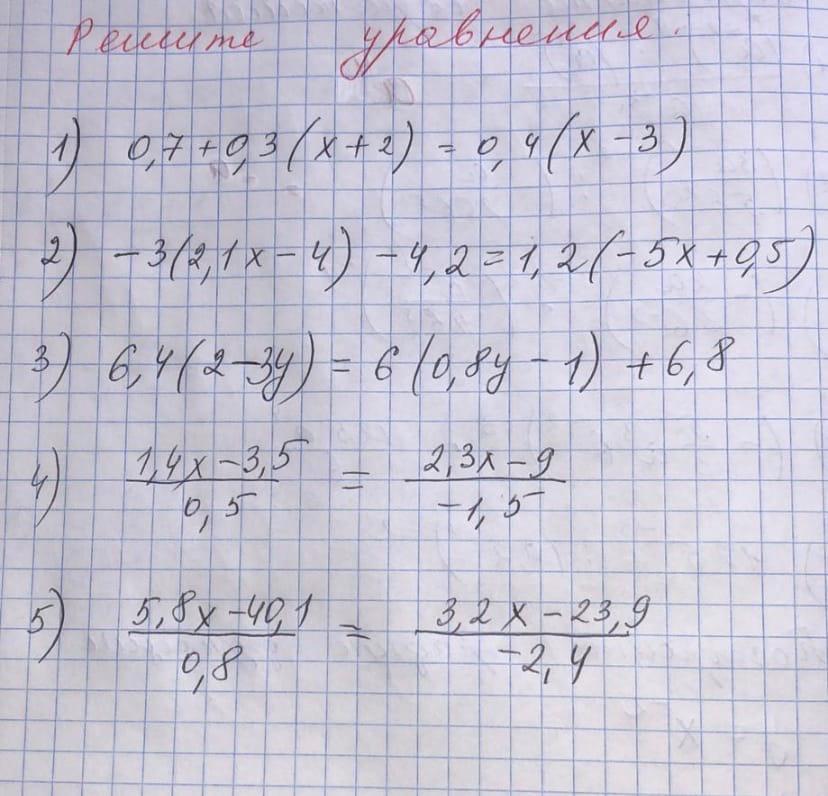 Решите уравнения.
1) 0,7 + 0,3(x + 2) = 0,4(x - 3)
2) -3(2,1x - 4) - 4,2 = 1,2(-5x + 0,5)
3) 6,4(2 - 3y) = 6(0,8y - 1) + 6,8
4) (1,4x - 3,5)/0,5 = (2,3x - 9)/-1,5
5) (5,8x - 40,1)/0,8 = (3,2x - 23,9)/-2,4